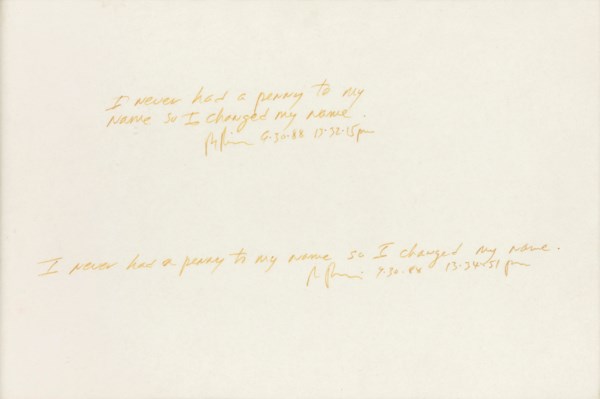 I never had a penny to my
name so I changed my name.
6·30·88 13·32·15pm
I never had a penny to my name so I changed my name.
7·30·88 13·34·51 pm